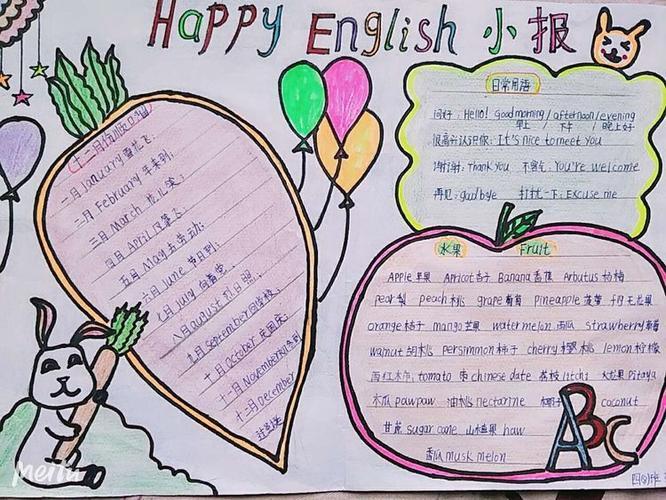 Happy English 小报
一月 January 雪花飞;
二月 February 年来到;
三月 March
四月 April
五月 May 去劳动;
六月 June 节日到;
七月 July 向着党;
八月 august 烈日照;
九月 September 回学校;
十月 October
十一月 November
十二月 December
日常用语
问好: Hello! Good morning / afternoon / evening
早上 / 下午 / 晚上好
很高兴认识你: It's nice to meet you
谢谢: Thank you 不客气: You're welcome
再见: goodbye 打扰一下: Excuse me
水果 Fruit
Apple 苹果 Apricot 杏子 Banana 香蕉 Arbutus 杨梅
pear 梨 peach 桃 grape 葡萄 pineapple 菠萝
orange 桔子 mango 芒果 watermelon 西瓜 strawberry
walnut 胡桃 persimmon 柿子 cherry 樱桃 lemon 柠檬
西红柿 tomato 枣 chinese date 荔枝 litchi 火龙果 Pitaya
木瓜 pawpaw 油桃 nectarine 椰子 coconut
甘蔗 sugar cane 山楂果 haw
香瓜 musk melon
ABC
Meitu